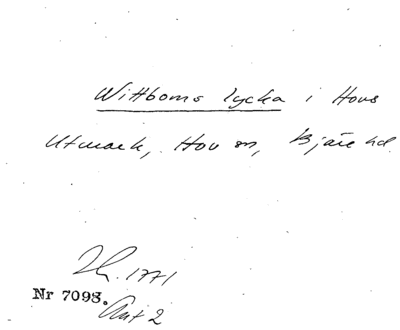 Wittboms lycka i Hovs
Utmark, Hov sn, Bjäre hd.
Lh. 1771
Nr 7098.
Akt 2